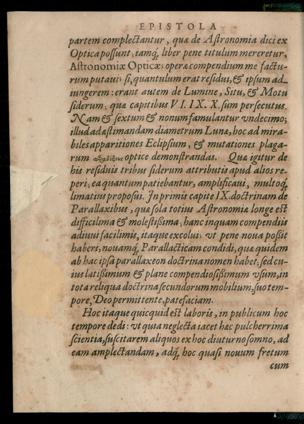 EPISTOLA
partem complectantur, quæ de Astronomia dici ex
Optica possunt, tamq́; liber pene titulum mereretur,
Astronomiæ Opticæ: operæ compendium me factu-
rum putavi: si, quantulum erat residui, & ipsum ad-
iungerem: erant autem de Lumine, Situ, & Motu
siderum: quæ capitibus VI. IX. X. sum persecutus.
Nam & sextum & nonum famulantur vndecimo;
illud ad æstimandam diametrum Lunæ, hoc ad mira-
biles apparitiones Eclipsium, & mutationes plaga-
rum optice demonstrandas. Quæ igitur de
his residuis tribus siderum attributis apud alios re-
peri, ea quantum patebantur, amplificaui, multoq́;
limatius proposui. Inprimis capite IX. doctrinam de
Parallaxibus, quæ sola totius Astronomiæ longe est
difficilima & molestissima, hanc inquam compendiis
adiuui facilimis, itaque excolui: vt pene noua possit
haberi, nouamq́; Parallacticam condidi, quæ quidem
ab hac ipsa parallaxeon doctrina nomen habet, sed cu-
ius latissimum & plane compendiosissimum vsum, in
tota reliqua doctrina secundorum mobilium, suo tem-
pore, Deo permittente, patefaciam.
Hoc itaque quicquid est laboris, in publicum hoc
tempore dedi: vt quia neglecta iacet hæc pulcherrima
scientia, suscitarem aliquos ex hoc diuturno somno, ad
eam amplectandam, adq́; hoc quasi nouum fretum
cum